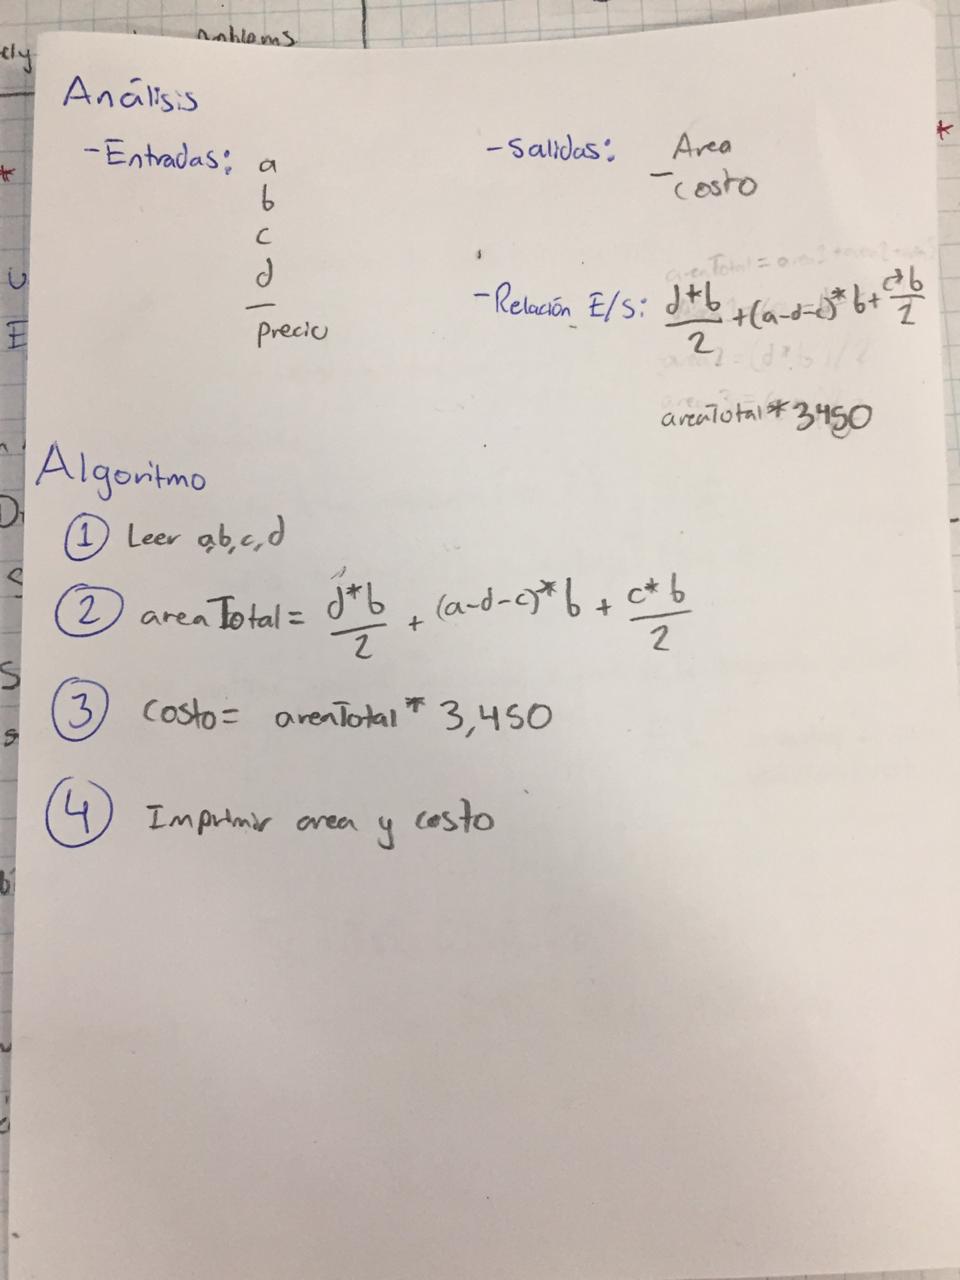 Análisis
-Entradas: a
b
c
d
precio
-Salidas: Area
- costo
-Relación E/S: d*b/2 + (a-d-c)*b + c*b/2
areaTotal * 3450
Algoritmo
① Leer a,b,c,d
② areaTotal = d*b/2 + (a-d-c)*b + c*b/2
③ Costo = areaTotal * 3,450
④ Imprimir area y costo